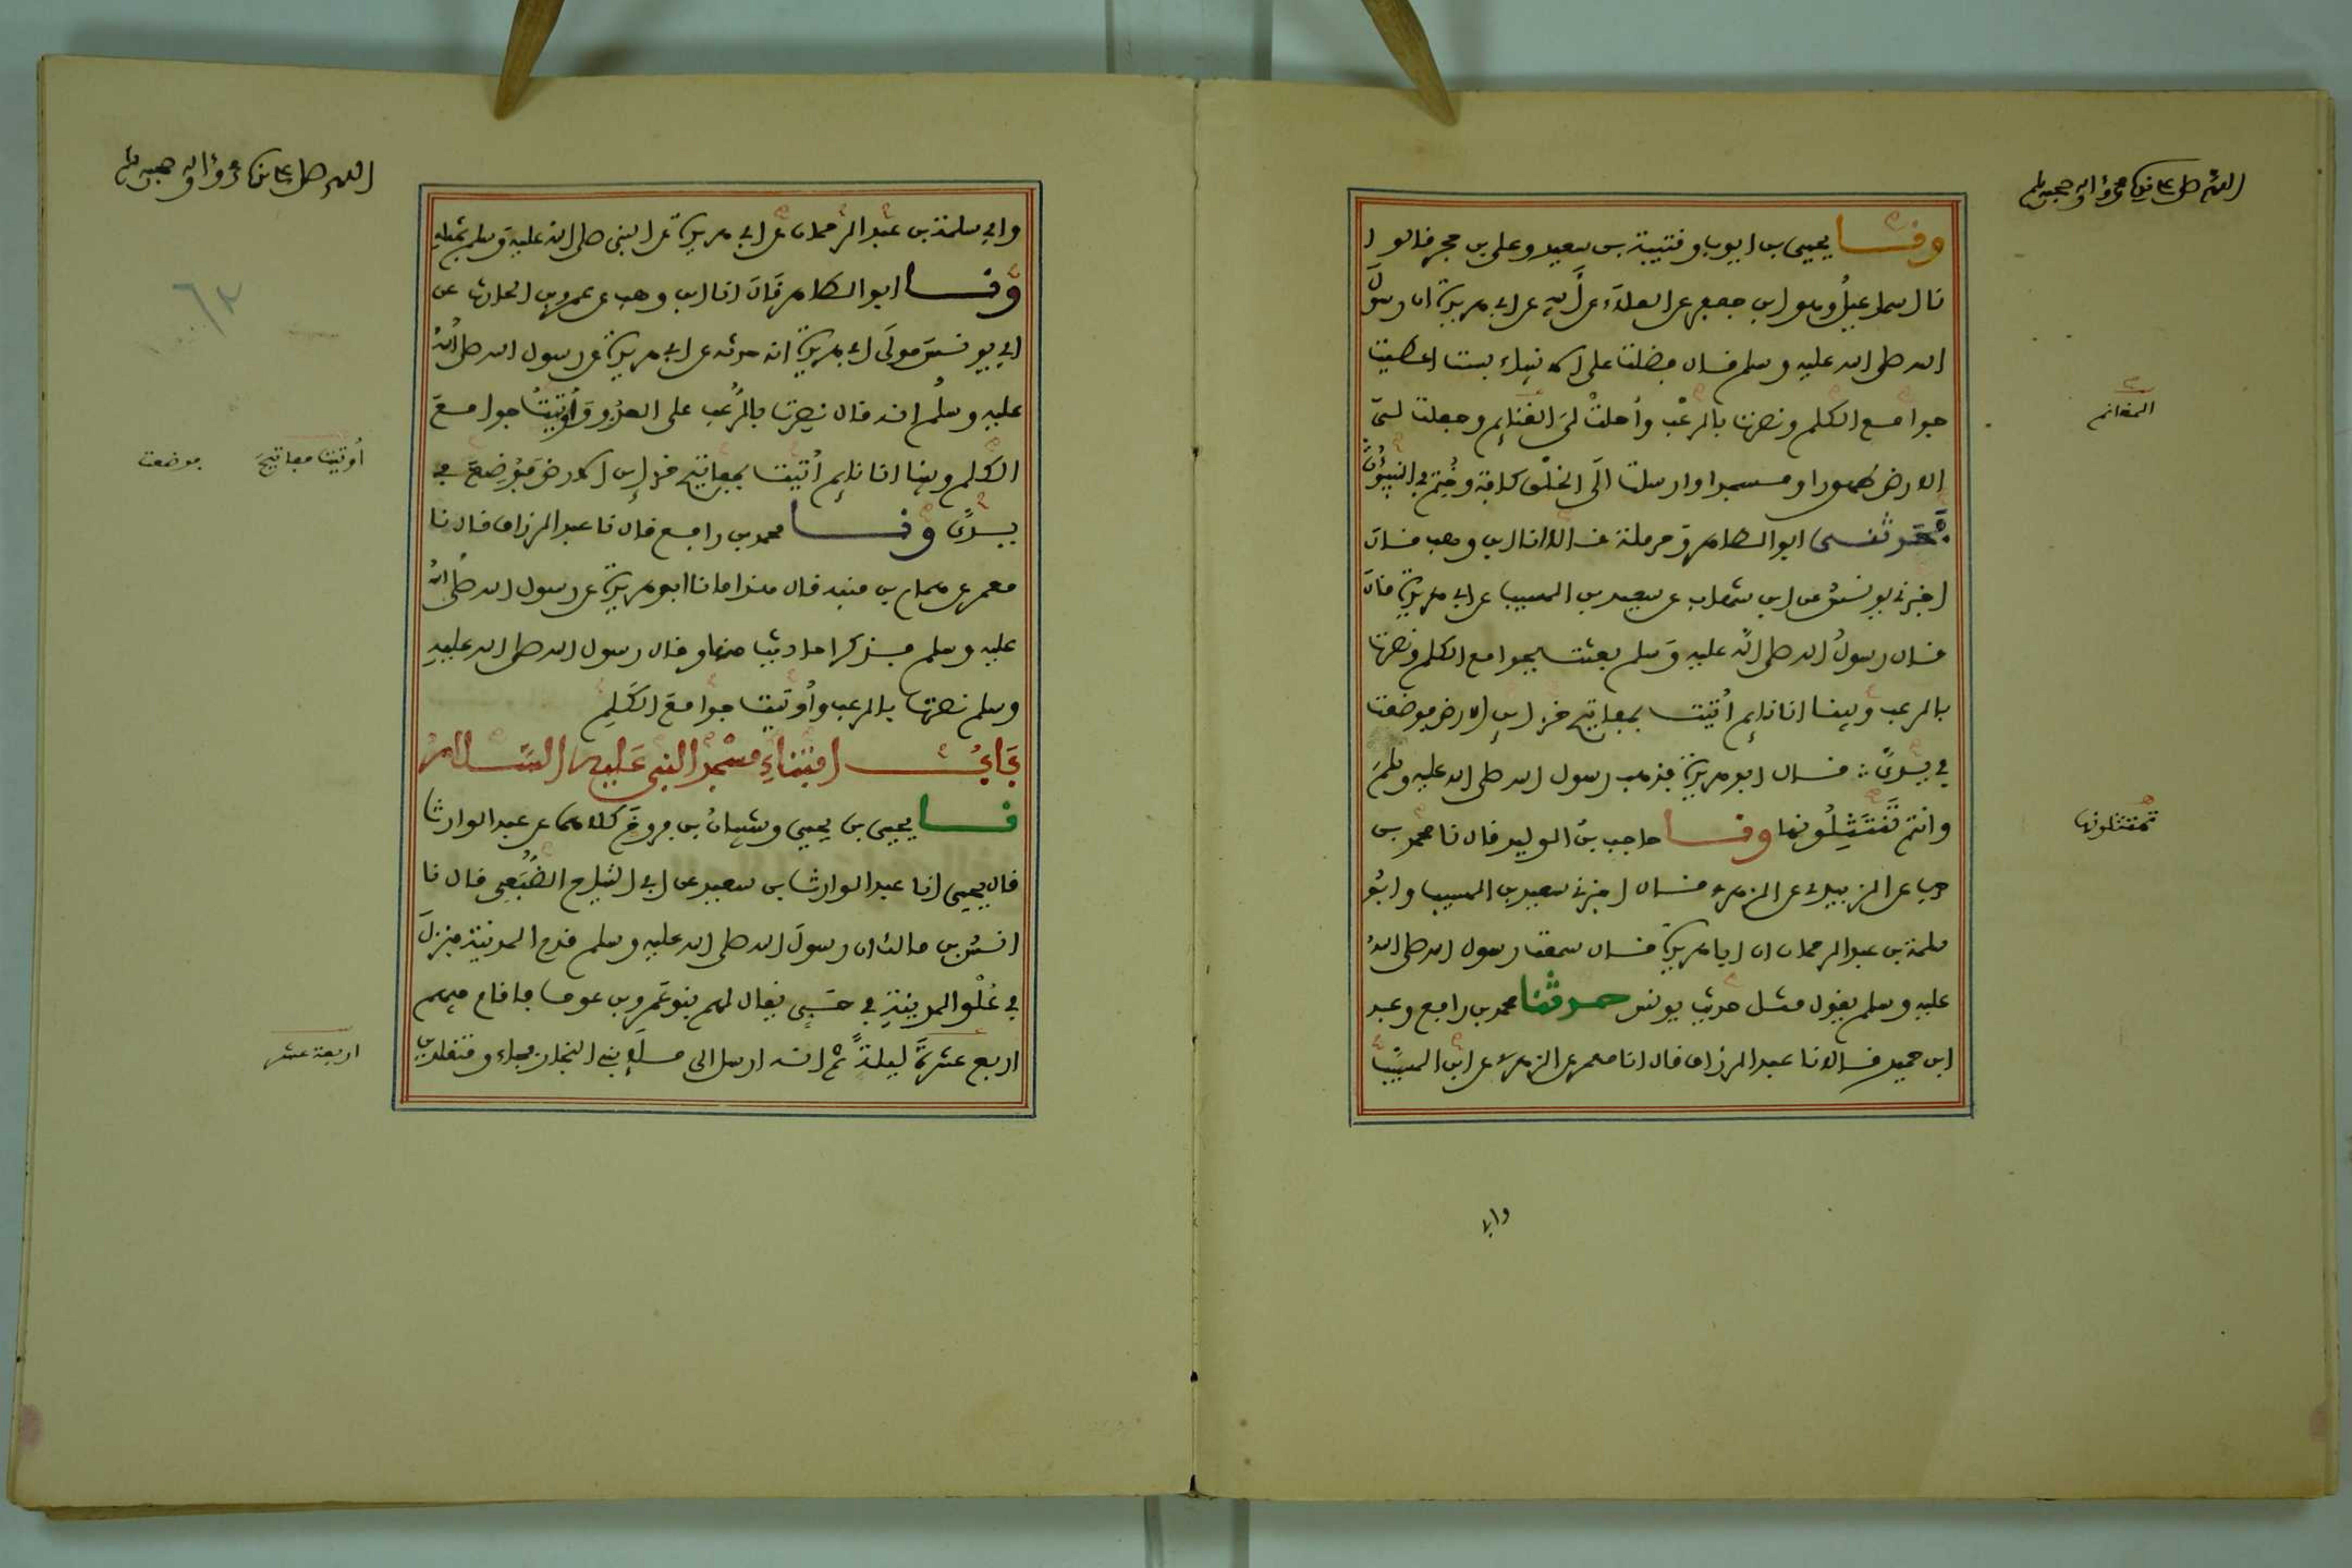 اللهم صل على سيدنا محمد وءاله وصحبه وسلم
ونا يحيى بن ايوب وقتيبة بن سعيد وعلي بن حجر قالوا
نا اسماعيل وهو ابن جعفر عن العلاء عن أبيه عن ابي هريرة ان رسول
الله صلى الله عليه وسلم قال فضلت على الانبياء بست اعطيت
جوامع الكلم ونصرت بالرعب وأحلت لي الغنايم وجعلت لي
المغانم
الارض طهورا ومسجدا وارسلت الى الخلق كافة وختم بي النبيون
حدثني ابو الطاهر وحرملة قالا انا ابن وهب قال
اخبرني يونس عن ابن شهاب عن سعيد بن المسيب عن ابي هريرة قال
قال رسول الله صلى الله عليه وسلم بعثت بجوامع الكلم ونصرت
بالرعب وبينا انا نايم أتيت بمفاتيح خزاين الارض فوضعت
في يدي قال ابو هريرة فذهب رسول الله صلى الله عليه وسلم
وانتم تنتثلونها ونا حاجب بن الوليد قال نا محمد بن
حرب عن الزبيدي عن الزهري قال اخبرني سعيد بن المسيب وابو
سلمة بن عبد الرحمان ان ابا هريرة قال سمعت رسول الله صلى الله
عليه وسلم يقول مثل حديث يونس حدثنا محمد بن رافع وعبد
ابن حميد قالا نا عبد الرزاق قال انا معمر عن الزهري عن ابن المسيب
وابي
اللهم صل على سيدنا محمد وءاله وصحبه وسلم
وابي سلمة بن عبد الرحمان عن ابي هريرة عن النبي صلى الله عليه وسلم بمثله
ونا ابو الطاهر قال انا ابن وهب عن عمرو بن الحارث عن
ابي يونس مولى ابي هريرة انه حدثه عن ابي هريرة عن رسول الله صلى الله
عليه وسلم انه قال نصرت بالرعب على العدو وأوتيت جوامع
الكلم وبينا انا نايم أتيت بمفاتيح خزاين الارض فوضعت في
أوتيت مفاتيح
فوضعت
يدي ونا محمد بن رافع قال نا عبد الرزاق قال نا
معمر عن همام بن منبه قال هذا ما نا ابو هريرة عن رسول الله صلى الله
عليه وسلم فذكر احاديث منها وقال رسول الله صلى الله عليه
وسلم نصرت بالرعب وأوتيت جوامع الكلم
باب ابتناء مسجد النبي عليه السلام
نا يحيى بن يحيى وشيبان بن فروخ كلاهما عن عبد الوارث
قال يحيى انا عبد الوارث بن سعيد عن ابي التياح الضبعي قال نا
انس بن مالك ان رسول الله صلى الله عليه وسلم قدم المدينة فنزل
في علو المدينة في حي يقال لهم بنو عمرو بن عوف فاقام فيهم
اربع عشرة ليلة ثم انه ارسل الى ملإ بني النجار فجاءو متقلدين
اربعة عشر